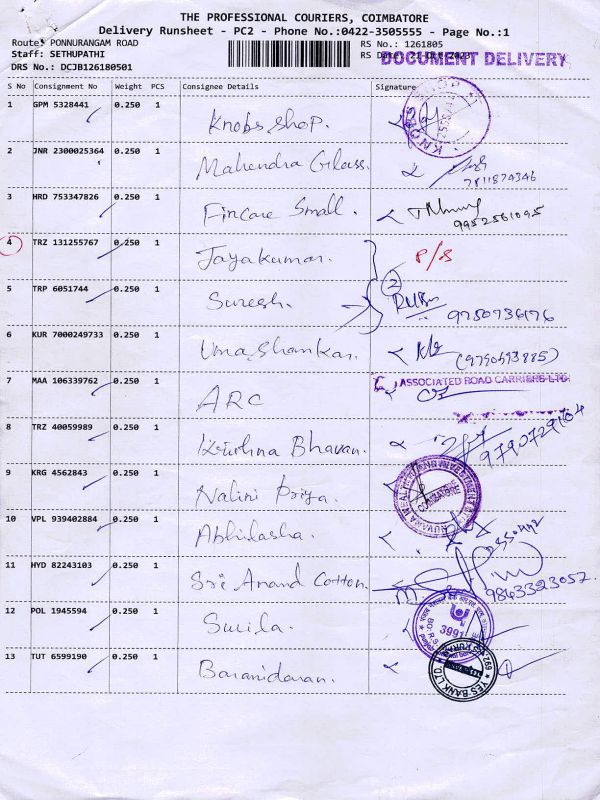 THE PROFESSIONAL COURIERS, COIMBATORE
Delivery Runsheet - PC2 - Phone No.:0422-3505555 - Page No.:1
Route: PONNURANGAM ROAD
Staff: SETHUPATHI
DRS No.: DCJB126180501
RS No.: 1261805
RS Date: 21-Dec-2023
DOCUMENT DELIVERY
S No Consignment No Weight PCS Consignee Details Signature
1 GPM 5328441 0.250 1 Knobs shop.
2 JNR 2300025364 0.250 1 Mahendra Glass. 7811874346
3 HRD 753347826 0.250 1 Fincare Small. 9952561095
4 TRZ 131255767 0.250 1 Jayakumar. P/S
5 TRP 6051744 0.250 1 Suresh. 2 9750736176
6 KUR 7000249733 0.250 1 Uma Shankar. (9790593885)
7 MAA 106339762 0.250 1 ARC ASSOCIATED ROAD CARRIERS LTD.
8 TRZ 40059989 0.250 1 Krishna Bhavan. 9790729164
9 KRG 4562843 0.250 1 Nalini Priya. COIMBATORE
10 VPL 939402884 0.250 1 Abhilasha.
11 HYD 82243103 0.250 1 Sri Anand Cotton. 9843323057.
12 POL 1945594 0.250 1 Sucila. 3991
13 TUT 6599190 0.250 1 Baranidaran. YES BANK LTD.